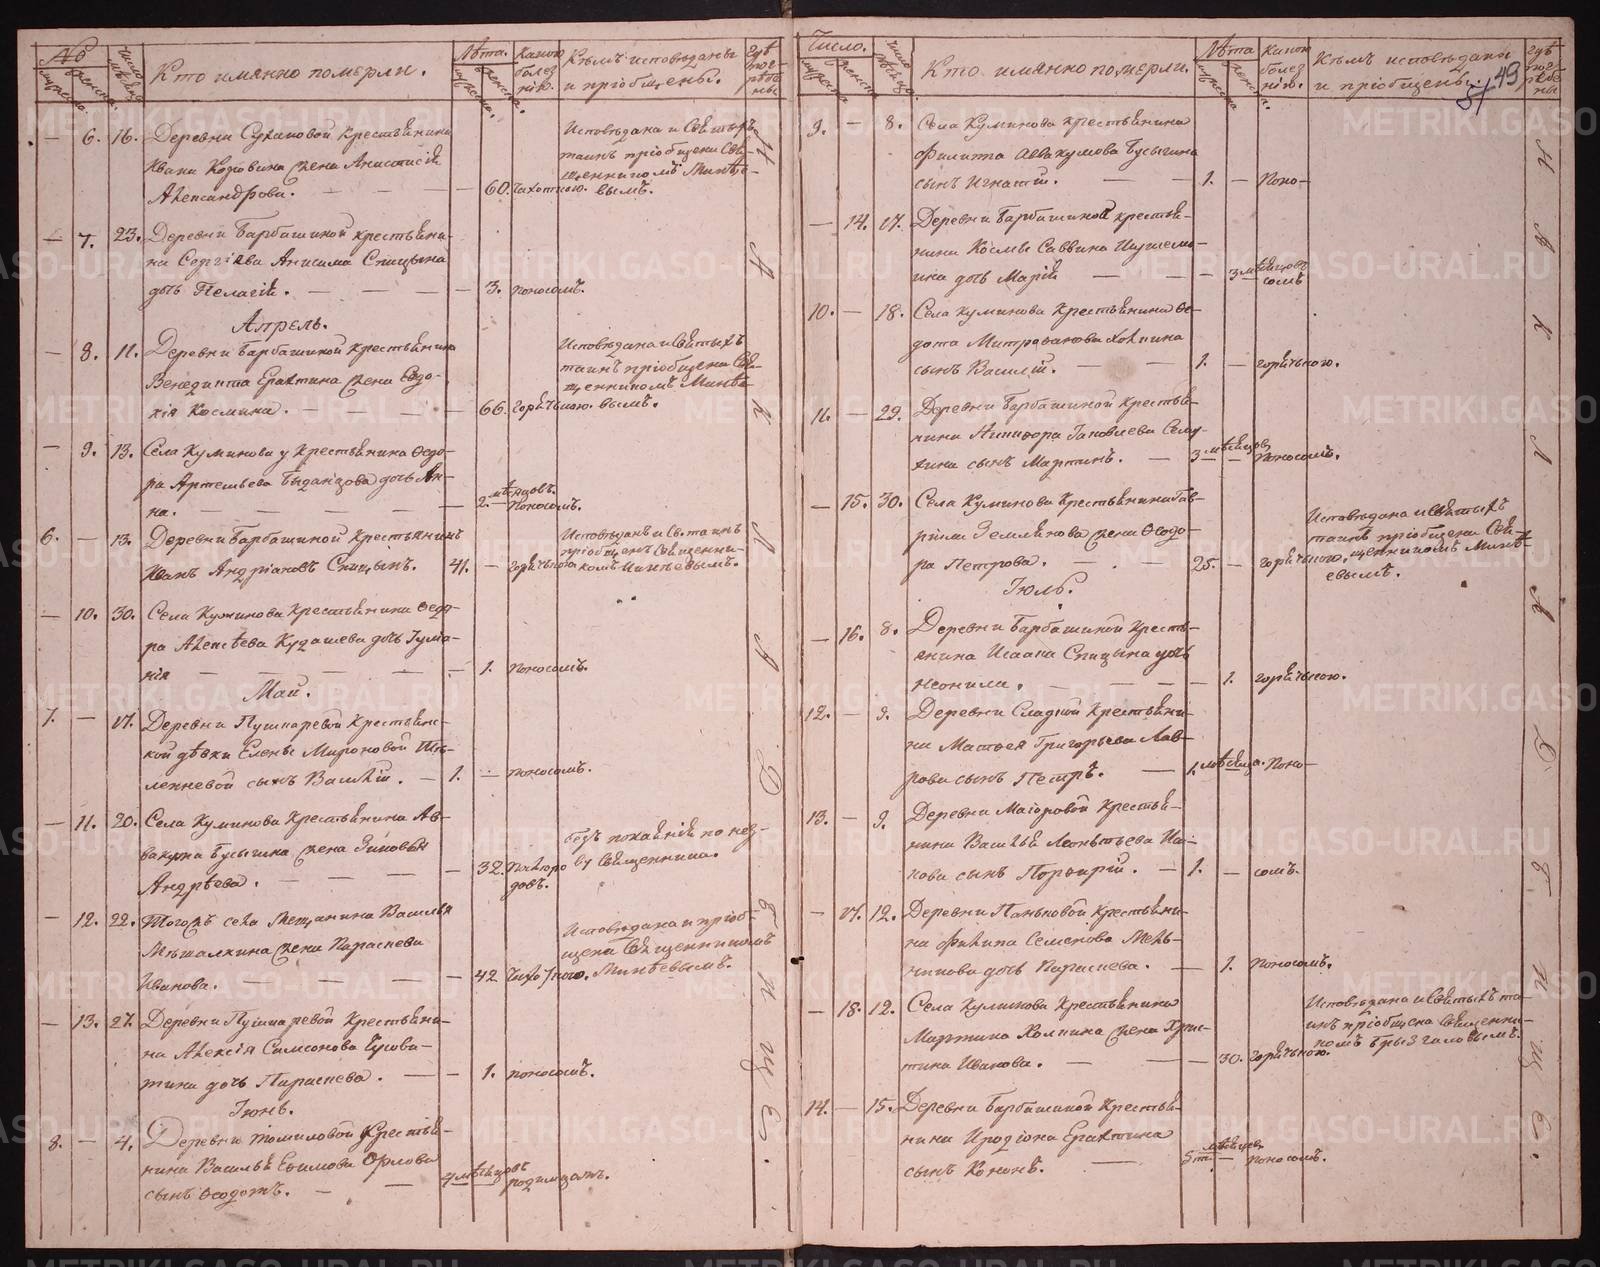 №
мужеска.
женска.
Число мѣсяца.
Кто именно померли.
Лѣта.
мужеска.
женска.
Какою болезнію.
Кѣмъ исповѣданы
и пріобщены.
Гдѣ погребены
— 6. 16. Деревни Сукановой крестьянина
Ивана Козовина жена Анастасія
Александрова. — — — — 60. чахоткою.
Исповѣдана и Святыхъ
таинъ пріобщена Свя-
щенникомъ Минѣе-
вымъ.
— 7. 23. Деревни Барбашиной крестьяни-
на Сергіева Анисима Спицына
дочь Пелагія. — — — — 3. поносомъ.
Апрель.
— 8. 11. Деревни Барбашиной крестьянина
Венедикта Ерахтина жена Евдо-
кія Космина. — — — — 66. горячкою.
Исповѣдана и Святыхъ
таинъ пріобщена Свя-
щенникомъ Минѣе-
вымъ.
— 9. 13. Села Куминова у крестьянина Ѳедо-
ра Артемьева дочь Ан-
на. — — — — 2. мѣсяцовъ. поносомъ.
6. — 13. Деревни Барбашиной крестьянинъ
Иванъ Андріановъ Спицынъ. 41. — горячкою
Исповѣданъ и Св. таинъ
пріобщенъ Священни-
комъ Минѣевымъ.
— 10. 30. Села Куминова крестьянина Ѳедо-
ра Алексѣева Кудашева дочь Гума-
нія — — — — 1. поносомъ.
Май.
7. — 17. Деревни Пушкаревой крестьян-
кой дѣвки Елены Мироновой
сынъ Василій. — 1. — поносомъ.
— 11. 20. Села Куминова крестьянина Ав-
вакума Бусыгина жена Зиновья
Андрѣева. — — — — 32.
безъ покаянія по нез-
ву Священника.
— 12. 22. Тогожъ села Мещанина Василья
Мѣшалкина жена Параскева
Иванова. — — — — 42 чахоткою.
Исповѣдана и пріоб-
щена Священникомъ
Минѣевымъ.
— 13. 27. Деревни Пушкаревой крестьяни-
на Алексія Симсонова
дочь Параскева. — — 1. поносомъ.
Іюнь.
8. — 4. Деревни Томиловой крестья-
нина Василья Ефимова Орлова
сынъ Ѳеодотъ. — — 4 мѣсяцовъ родимцомъ.
На
кладбище.
Число.
мужеска
женска
Число мѣсяца
Кто именно померли.
Лѣта
мужеска
женска.
Какою болезнію.
Кѣмъ исповѣданы
и пріобщены.
Гдѣ погребены
51 49
9. — 8. Села Куминова крестьянина
Филиппа Аввакумова Бусыгина
сынъ Игнатій. — 1. — Поно-
— 14. 17. Деревни Барбашиной крестья-
нина Космы Саввина
дочь Марія — — — 3 мѣсяцовъ сомъ
10. — 18. Села Куминова крестьянина Ѳе-
дота Митрофанова Холкина
сынъ Василій. — 1. — горячкою.
11. — 29. Деревни Барбашиной крестья-
нина Никифора Яковлева
сынъ Мартинъ. — 3 мѣсяцовъ — поносомъ.
— 15. 30. Села Куминова крестьянина Гав-
ріила Землянова жена Ѳеодо-
ра Петрова. — — 25. — горячкою.
Исповѣдана и Святыхъ
таинъ пріобщена Свя-
щенникомъ Минѣ-
евымъ.
Іюль.
— 16. 8. Деревни Барбашиной кресть-
янина Исаака Спицына дочь
Неонила. — — — 1. горячкою.
12. — 9. Деревни Сладкой крестьяни-
на Матвея Григорьева Лав-
рова сынъ Петръ. — 1. мѣсяца. Поно-
13. — 9. Деревни Маіоровой крестья-
нина Василья Леонтьева Иса-
кова сынъ Порфирій. — 1. — сомъ.
— 17. 12. Деревни Паньковой крестьяни-
на Филипа Семенова Мель-
никова дочь Параскева. — 1. поносомъ.
— 18. 12. Села Куминова крестьянина
Мартина Холкина жена Хрис-
тина Иванова. — — 30. горячкою.
Исповѣдана и Святыхъ та-
инъ пріобщена Священни-
комъ Брызгаловымъ.
14. — 15. Деревни Барбашиной крестья-
нина Иродіона Ерахтина
сынъ Кононъ. — 5ти мѣсяцовъ — поносомъ.
На
кладбище.
METRIKI.GASO-URAL.RU